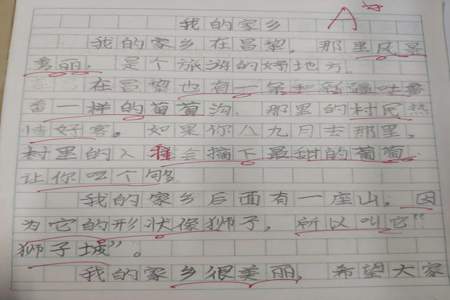 我的家乡
A
我的家乡在昌黎。那里风景
美丽，是个旅游的好地方。
在昌黎也有一条和新疆吐鲁
番一样的葡萄沟。那里的村民热
情好客。如果你八九月去那里，
村里的人 会摘下最甜的葡萄
让你吃个够
我的家乡后面有一座山，因
为它的形状像狮子，所以叫它"
狮子城"。
我的家乡很美丽，希望大家